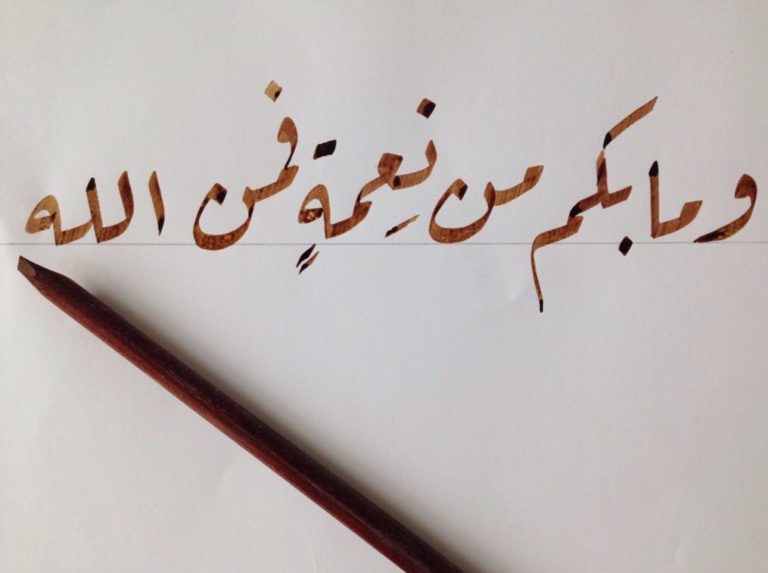 وما بكم من نِعمةٍ فمن الله